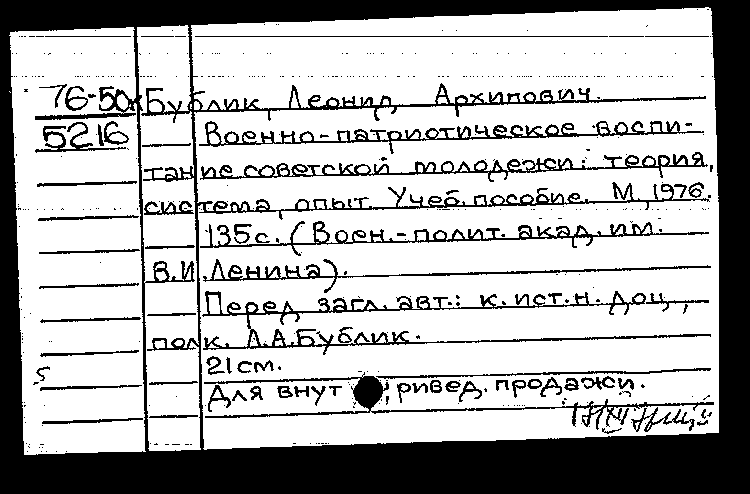 76-50к Бублик, Леонид Архипович.
5216 Военно-патриотическое воспи-
тание советской молодежи: теория,
система, опыт. Учеб. пособие. М., 1976.
135с. (Воен.-полит. акад. им.
В.И.Ленина).
Перед загл. авт.: к.ист.н. доц.,
полк. Л.А.Бублик.
21см.
S
Для внут ривед. продажи.